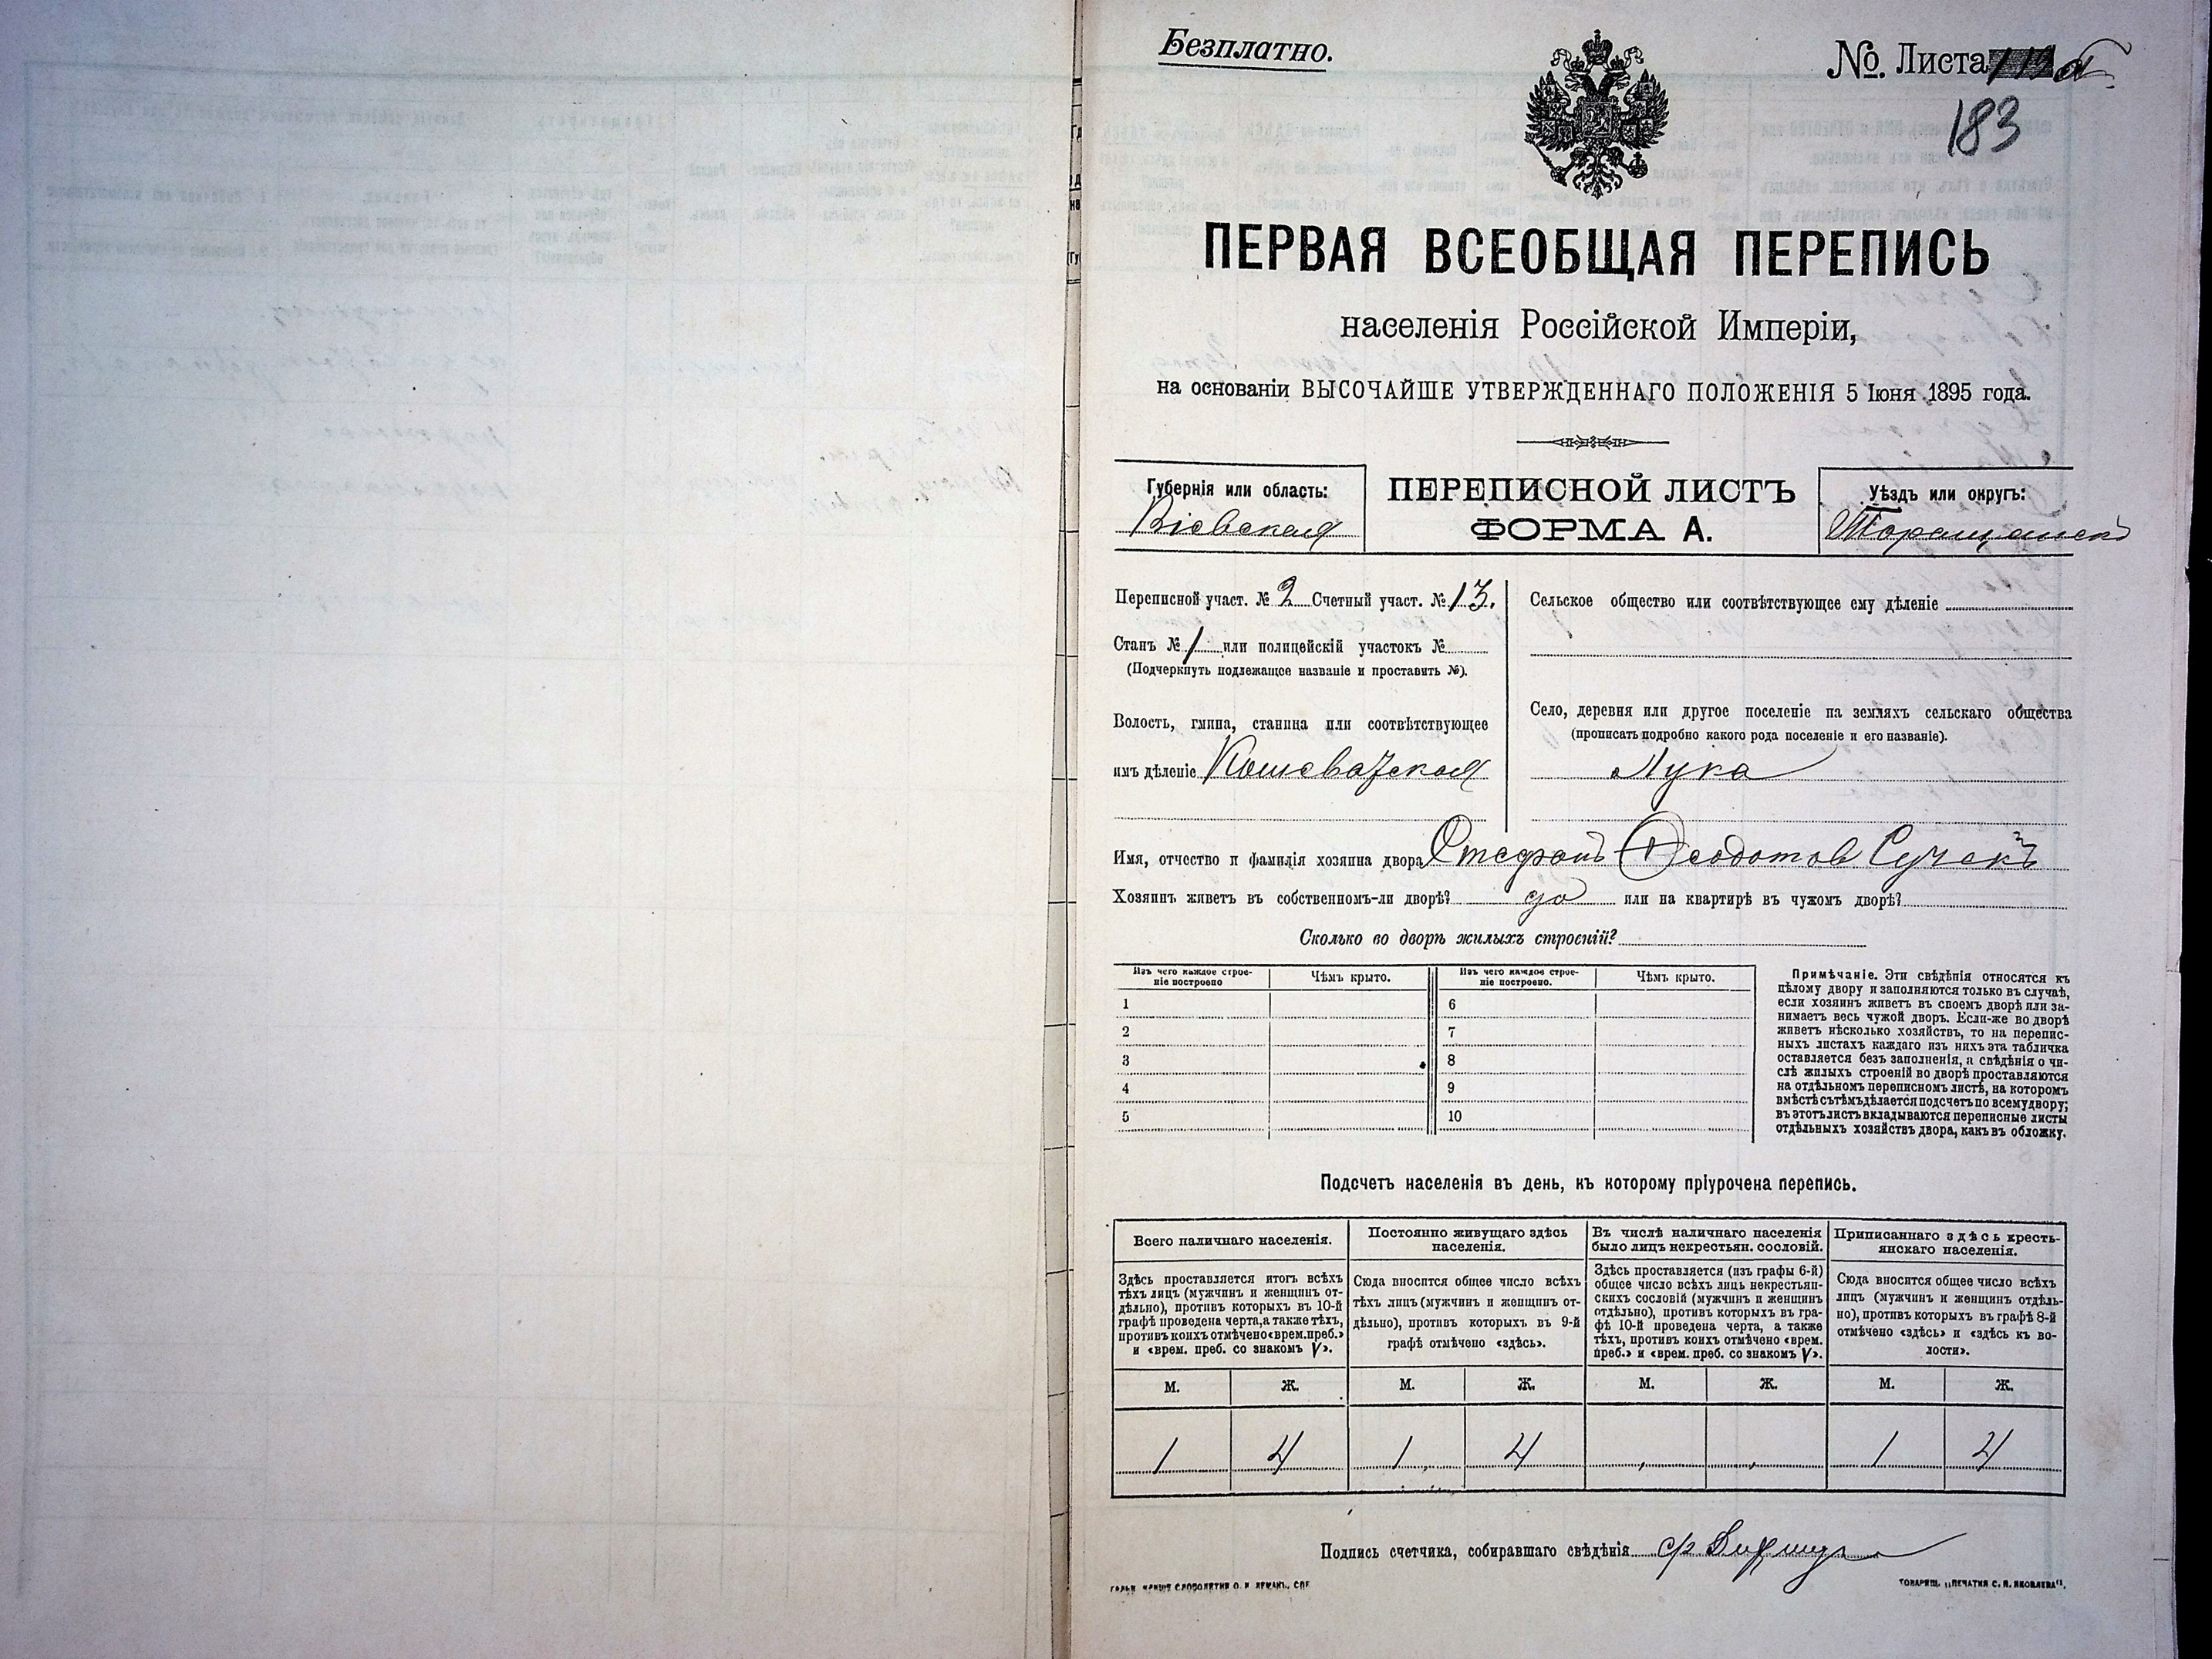 Безплатно.
№ Листа
183
ПЕРВАЯ ВСЕОБЩАЯ ПЕРЕПИСЬ
населенія Россійской Имперіи,
на основаніи ВЫСОЧАЙШЕ УТВЕРЖДЕННАГО ПОЛОЖЕНІЯ 5 Іюня 1895 года.
Губернія или область:
Кіевская
ПЕРЕПИСНОЙ ЛИСТЪ
ФОРМА А.
Уѣздъ или округъ:
Таращанскъ
Переписной участ. № 2 Счетный участ. № 13.
Станъ № 1 или полицейскій участокъ №
(Подчеркнуть подлежащее названіе и проставить №).
Волость, гмина, станица или соотвѣтствующее
имъ дѣленіе Кошеватская
Сельское общество или соотвѣтствующее ему дѣленіе
Село, деревня или другое поселеніе на земляхъ сельскаго общества
(прописать подробно какого рода поселеніе и его названіе).
Лука
Имя, отчество и фамилія хозяина двора Стефанъ Ѳеодотов Сучекъ
Хозяинъ живетъ въ собственномъ-ли дворѣ? да или на квартирѣ въ чужомъ дворѣ?
Сколько во дворѣ жилыхъ строеній?
Изъ чего каждое строе-
ніе построено
Чѣмъ крыто.
Изъ чего каждое строе-
ніе построено.
Чѣмъ крыто.
1
2
3
4
5
6
7
8
9
10
Примѣчаніе. Эти свѣдѣнія относятся къ
цѣлому двору и заполняются только въ случаѣ,
если хозяинъ живетъ въ своемъ дворѣ или за-
нимаетъ весь чужой дворъ. Если-же во дворѣ
живетъ нѣсколько хозяйствъ, то на перепис-
ныхъ листахъ каждаго изъ нихъ эта табличка
оставляется безъ заполненія, а свѣдѣнія о чи-
слѣ жилыхъ строеній во дворѣ проставляются
на отдѣльномъ переписномъ листѣ, на которомъ
вмѣстѣ съ тѣмъ дѣлается подсчетъ по всему двору;
въ этотъ листъ вкладываются переписные листы
отдѣльныхъ хозяйствъ двора, какъ въ обложку.
Подсчетъ населенія въ день, къ которому пріурочена перепись.
Всего наличнаго населенія.
Здѣсь проставляется итогъ всѣхъ
тѣхъ лицъ (мужчинъ и женщинъ от-
дѣльно), противъ которыхъ въ 10-й
графѣ проведена черта, а также тѣхъ,
противъ коихъ отмѣчено «врем. преб.»
и «врем. преб. со знакомъ V».
Постоянно живущаго здѣсь
населенія.
Сюда вносится общее число всѣхъ
тѣхъ лицъ (мужчинъ и женщинъ от-
дѣльно), противъ которыхъ въ 9-й
графѣ отмѣчено «здѣсь».
Въ числѣ наличнаго населенія
было лицъ некрестьян. сословій.
Здѣсь проставляется (изъ графы 6-й)
общее число всѣхъ лицъ некрестьян-
скихъ сословій (мужчинъ и женщинъ
отдѣльно), противъ которыхъ въ гра-
фѣ 10-й проведена черта, а также
тѣхъ, противъ коихъ отмѣчено «врем.
преб.» и «врем. преб. со знакомъ V».
Приписаннаго здѣсь кресть-
янскаго населенія.
Сюда вносится общее число всѣхъ
лицъ (мужчинъ и женщинъ отдѣль-
но), противъ которыхъ въ графѣ 8-й
отмѣчено «здѣсь» и «здѣсь къ во-
лости».
М. Ж. М. Ж. М. Ж. М. Ж.
1 4 1 4 1 4
Подпись счетчика, собиравшаго свѣдѣнія
ТОВАРИЩ. „ПЕЧАТНЯ С. П. ЯКОВЛЕВА“.